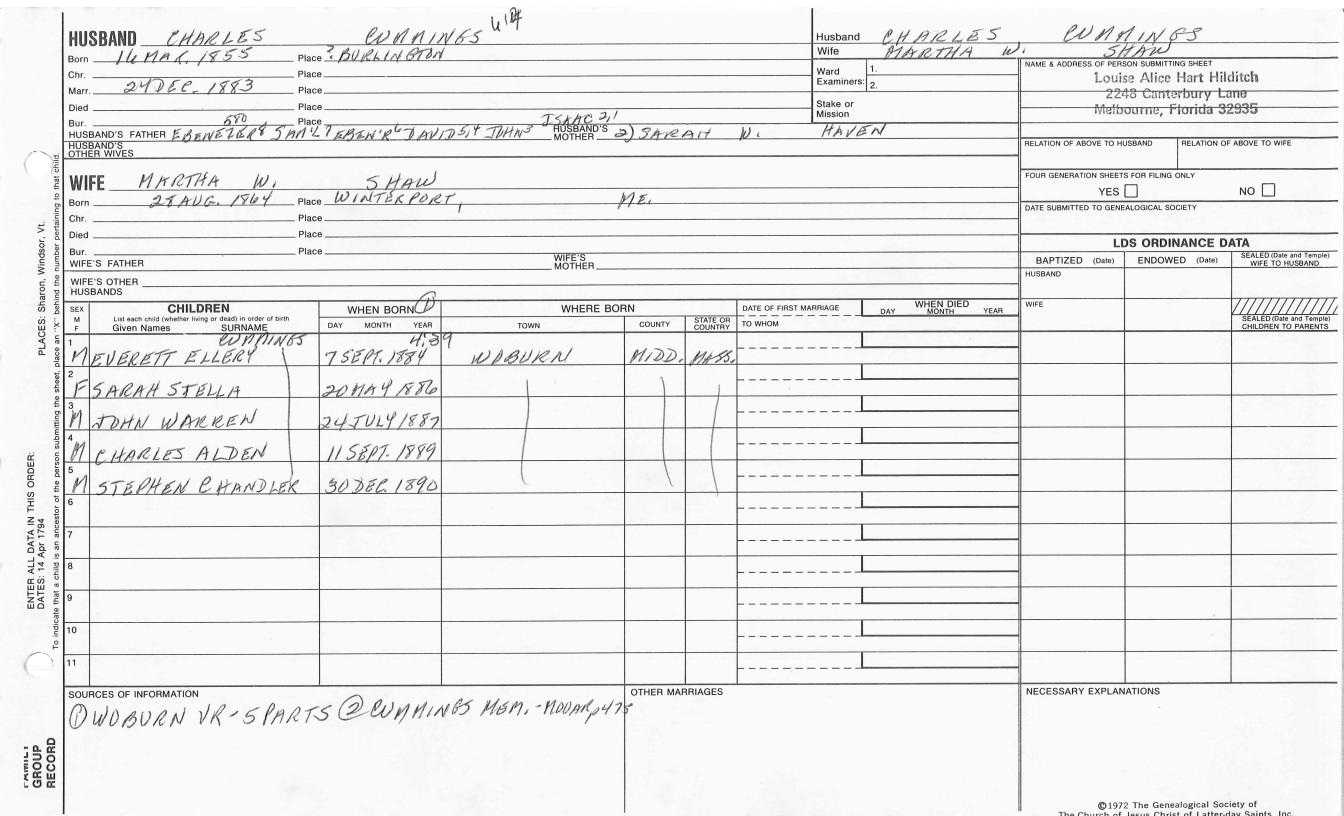 HUSBAND CHARLES CUMMINGS
Born 14 MAR. 1855 Place ? BURLINGTON
Chr. Place
Marr. 24 DEC. 1883 Place
Died Place
Bur. Place
580 ISAAC 2,1
HUSBAND'S FATHER EBENEZER8 SAM'L7 EBEN'R6 DAVID5,4 JOHN3 HUSBAND'S MOTHER 2) SARAH W. HAVEN
HUSBAND'S OTHER WIVES
WIFE MARTHA W. SHAW
Born 28 AUG. 1864 Place WINTERPORT, ME.
Chr. Place
Died Place
Bur. Place
WIFE'S FATHER WIFE'S MOTHER
WIFE'S OTHER HUSBANDS
Husband CHARLES CUMMINGS
Wife MARTHA W. SHAW
Ward Examiners: 1.
2.
Stake or Mission
NAME & ADDRESS OF PERSON SUBMITTING SHEET
Louise Alice Hart Hilditch
2248 Canterbury Lane
Melbourne, Florida 32935
RELATION OF ABOVE TO HUSBAND RELATION OF ABOVE TO WIFE
FOUR GENERATION SHEETS FOR FILING ONLY
YES NO
DATE SUBMITTED TO GENEALOGICAL SOCIETY
LDS ORDINANCE DATA
BAPTIZED (Date) ENDOWED (Date) SEALED (Date and Temple) WIFE TO HUSBAND
HUSBAND
WIFE
SEALED (Date and Temple) CHILDREN TO PARENTS
SEX M F
CHILDREN
List each child (whether living or dead) in order of birth
Given Names SURNAME
WHEN BORN ①
DAY MONTH YEAR
WHERE BORN
TOWN COUNTY STATE OR COUNTRY
DATE OF FIRST MARRIAGE
TO WHOM
WHEN DIED
DAY MONTH YEAR
CUMMINGS 4:39
1 M EVERETT ELLERY 7 SEPT. 1884 WOBURN MIDD. MASS.
2 F SARAH STELLA 20 MAY 1886
3 M JOHN WARREN 24 JULY 1887
4 M CHARLES ALDEN 11 SEPT. 1889
5 M STEPHEN CHANDLER 30 DEC. 1890
6
7
8
9
10
11
SOURCES OF INFORMATION
① WOBURN VR - 5 PARTS ② CUMMINGS MEM. - MOOAR p475
OTHER MARRIAGES
NECESSARY EXPLANATIONS
©1972 The Genealogical Society of
The Church of Jesus Christ of Latter-day Saints, Inc.
ENTER ALL DATA IN THIS ORDER:
DATES: 14 Apr 1794 PLACES: Sharon, Windsor, Vt.
To indicate that a child is an ancestor of the person submitting the sheet, place an "X" behind the number pertaining to that child.
FAMILY
GROUP
RECORD